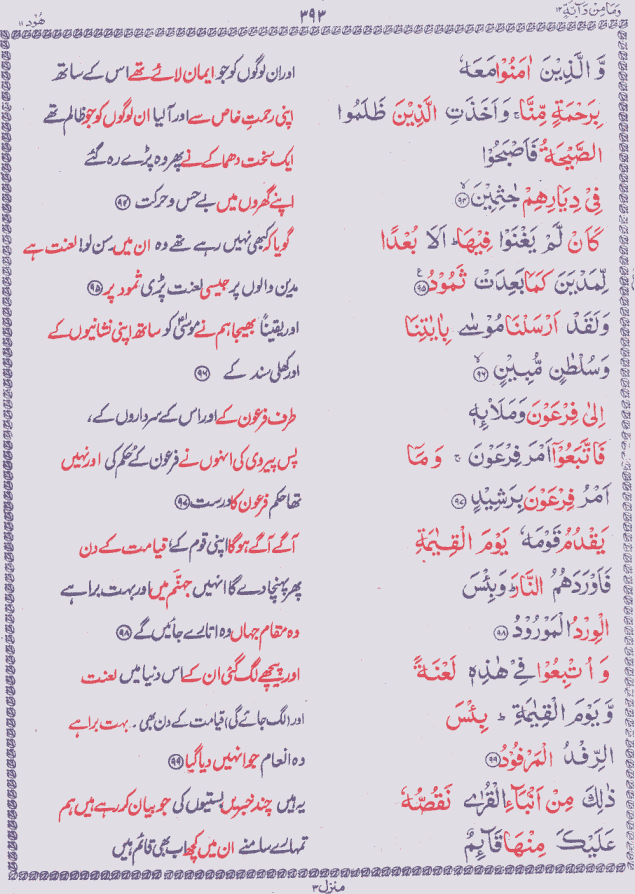 وَمَا مِنْ دَآبَّةٍ ١٢ ٣٩٣ هُوْد ١١
وَّ الَّذِيْنَ اٰمَنُوْا مَعَهٗ اور ان لوگوں کو جو ایمان لائے تھے اس کے ساتھ
بِرَحْمَةٍ مِّنَّا ۚ وَ اَخَذَتِ الَّذِيْنَ ظَلَمُوا اپنی رحمتِ خاص سے اور آلیا ان لوگوں کو جو ظالم تھے
الصَّيْحَةُ فَاَصْبَحُوْا ایک سخت دھماکے نے پھر وہ پڑے رہ گئے
فِىْ دِيَارِهِمْ جٰثِمِيْنَ ۙ﴿٩٤﴾ اپنے گھروں میں بے حس و حرکت ﴿٩٤﴾
كَاَنْ لَّمْ يَغْنَوْا فِيْهَا ؕ اَلَا بُعْدًا گویا کہ کبھی نہیں رہے تھے وہ ان میں سن لو! لعنت ہے
لِّمَدْيَنَ كَمَا بَعِدَتْ ثَمُوْدُ ۧ﴿٩٥﴾ مدین والوں پر جیسی لعنت پڑی ثمود پر ﴿٩٥﴾
وَ لَقَدْ اَرْسَلْنَا مُوْسٰى بِاٰيٰتِنَا اور یقیناً بھیجا ہم نے موسیٰؑ کو ساتھ اپنی نشانیوں کے
وَ سُلْطٰنٍ مُّبِيْنٍ ۙ﴿٩٦﴾ اور کھلی سند کے ﴿٩٦﴾
اِلٰى فِرْعَوْنَ وَ مَلَا۟ئِهٖ طرف فرعون کے اور اس کے سرداروں کے،
فَاتَّبَعُوْۤا اَمْرَ فِرْعَوْنَ ۚ وَ مَاۤ پس پیروی کی انہوں نے فرعون کے حکم کی اور نہیں
اَمْرُ فِرْعَوْنَ بِرَشِيْدٍ ﴿٩٧﴾ تھا حکم فرعون کا درست ﴿٩٧﴾
يَقْدُمُ قَوْمَهٗ يَوْمَ الْقِيٰمَةِ آگے آگے ہوگا اپنی قوم کے، قیامت کے دن
فَاَوْرَدَهُمُ النَّارَ ؕ وَ بِئْسَ پھر پہنچا دے گا انہیں جہنّم میں اور بہت برا ہے
الْوِرْدُ الْمَوْرُوْدُ ﴿٩٨﴾ وہ مقام جہاں وہ اتارے جائیں گے ﴿٩٨﴾
وَ اُتْبِعُوْا فِىْ هٰذِهٖ لَعْنَةً اور پیچھے لگ گئی ان کے اس دنیا میں لعنت
وَّ يَوْمَ الْقِيٰمَةِ ؕ بِئْسَ اور (لگ جائے گی) قیامت کے دن بھی۔ بہت برا ہے
الرِّفْدُ الْمَرْفُوْدُ ﴿٩٩﴾ وہ انعام جو انہیں دیا گیا ﴿٩٩﴾
ذٰلِكَ مِنْ اَنْۢبَآءِ الْقُرٰى نَقُصُّهٗ یہ ہیں چند خبریں بستیوں کی جو بیان کر رہے ہیں ہم
عَلَيْكَ مِنْهَا قَآئِمٌ تمہارے سامنے ان میں کچھ اب بھی قائم ہیں
منزل ٣